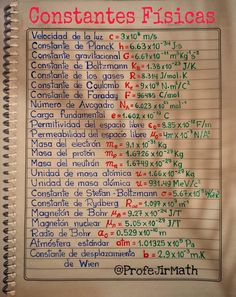 Constantes Físicas
Velocidad de la luz c = 3x10⁸ m/s
Constante de Planck h = 6.63x10⁻³⁴ J·s
Constante gravitacional G = 6.67x10⁻¹¹ m³kg⁻¹s⁻²
Constante de Boltzmann K = 1.38x10⁻²³ J/K
Constante de los gases R = 8.314 J/mol·K
Constante de Coulomb K = 9x10⁹ N·m²/C²
Constante de Faraday F = 96485 C/mol
Número de Avogadro = 6.023x10²³ mol⁻¹
Carga fundamental e = 1.602x10⁻¹⁹ C
Permitividad del espacio libre ε₀ = 8.85x10⁻¹² F/m
Permeabilidad del espacio libre = 4πx10⁻⁷ N/A²
Masa del electrón = 9.1x10⁻³¹ Kg
Masa del protón = 1.6726x10⁻²⁷ Kg
Masa del neutrón = 1.6749x10⁻²⁷ Kg
Unidad de masa atómica u = 1.66x10⁻²⁷ Kg
Unidad de masa atómica u = 931.49 MeV/c²
Constante de Stefan-Boltzmann = 5.67x10⁻⁸
Constante de Rydberg = 1.097x10⁷ m⁻¹
Magnetón de Bohr = 9.27x10⁻²⁴ J/T
Magnetón nuclear = 5.05x10⁻²⁷ J/T
Radio de Bohr a₀ = 0.529x10⁻¹⁰ m
Atmósfera estándar atm = 1.01325x10⁵ Pa
Constante de desplazamiento b = 2.9x10⁻³ m.K
de Wien
@ProfeJirMath